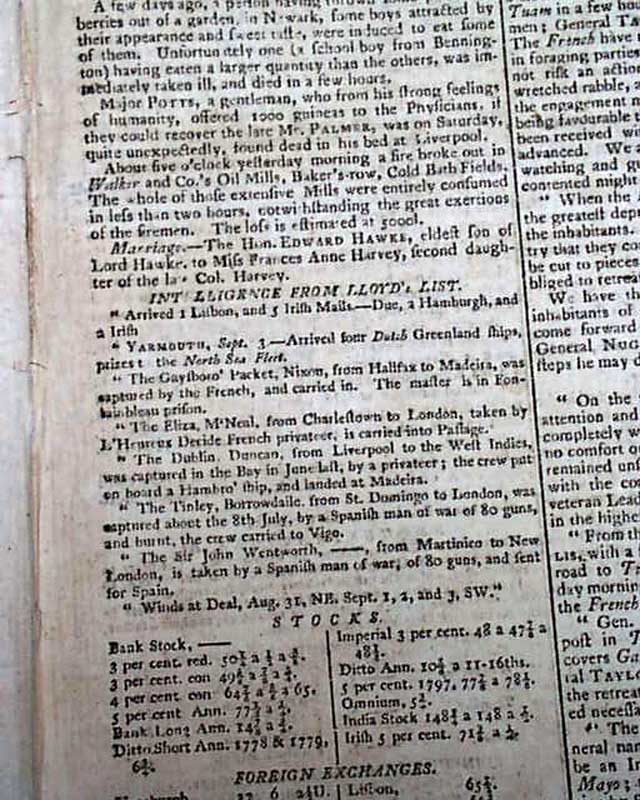 A few days ago, a person having thrown some
berries out of a garden, in Newark, some boys attracted by
their appearance and sweet taste, were induced to eat some
of them. Unfortunately one (a school boy from Benning-
ton) having eaten a larger quantity than the others, was im-
mediately taken ill, and died in a few hours.
Major POTTS, a gentleman, who from his strong feelings
of humanity, offered 1000 guineas to the Physicians, if
they could recover the late Mr. PALMER, was on Saturday,
quite unexpectedly, found dead in his bed at Liverpool.
About five o'clock yesterday morning a fire broke out in
Walker and Co.'s Oil Mills, Baker's-row, Cold Bath Fields.
The whole of those extensive Mills were entirely consumed
in less than two hours, notwithstanding the great exertions
of the firemen. The loss is estimated at 5000l.
Marriage.—The Hon. EDWARD HAWKE, eldest son of
Lord Hawke, to Miss Frances Anne Harvey, second daugh-
ter of the late Col. Harvey.
INTELLIGENCE FROM LLOYD's LIST.
"Arrived 1 Lisbon, and 5 Irish Mails.—Due, 2 Hamburgh, and
a Irish
"YARMOUTH, Sept. 3—Arrived four Dutch Greenland ships,
prizes t the North Sea Fleet.
"The Gaysboro' Packet, Nixon, from Halifax to Madeira, was
captured by the French, and carried in. The master is in Fon-
tainbleau prison.
"The Eliza, M'Neal, from Charlestown to London, taken by
L'Heureux Decide French privateer, is carried into Passage.
"The Dublin, Duncan, from Liverpool to the West Indies,
was captured in the Bay in June last, by a privateer; the crew put
on board a Hambro' ship, and landed at Madeira.
"The Tinley, Borrowdaile, from St. Domingo to London, was
captured about the 8th July, by a Spanish man of war of 80 guns,
and burnt, the crew carried to Vigo.
"The Sir John Wentworth, ——, from Martinico to New
London, is taken by a Spanish man of war, of 80 guns, and sent
for Spain.
"Winds at Deal, Aug. 31, NE. Sept. 1, 2, and 3, SW."
STOCKS.
Bank Stock, ——
3 per cent. red. 50
3 per cent. con 49
4 per cent. con 64 a 65.
5 per cent Ann. 77
Bank Long Ann. 14
Ditto Short Ann. 1778 & 1779,
6
Imperial 3 per cent. 48 a 47 a
48
Ditto Ann. 10 a 11-16ths.
5 per cent. 1797, 77 a 78
Omnium, 5
India Stock 148 a 148 a
Irish 5 per cent. 71 a
FOREIGN EXCHANGES.
Lisbon, 65
Tuam in a few hou
men; General TA
The French have
in foraging parties
not risk an action
wretched rabble, a
the engagement
being favourable t
been received w
advanced. We a
watching and g
contented might
"When the
the greatest dep
the inhabitants.
try that they co
be cut to pieces
bliged to retrea
We have th
inhabitants of
come forward
General NUG
steps he may d
"On the
attention and
completely w
no comfort o
remained und
with the co
veteran Lea
in the highe
"From th
LIS, with a
road to T
day mornin
the French
"Gen.
post in T
covers Ga
ial TAYLO
the retrea
ed necessa
"The
neral nam
be an In
Mayo;